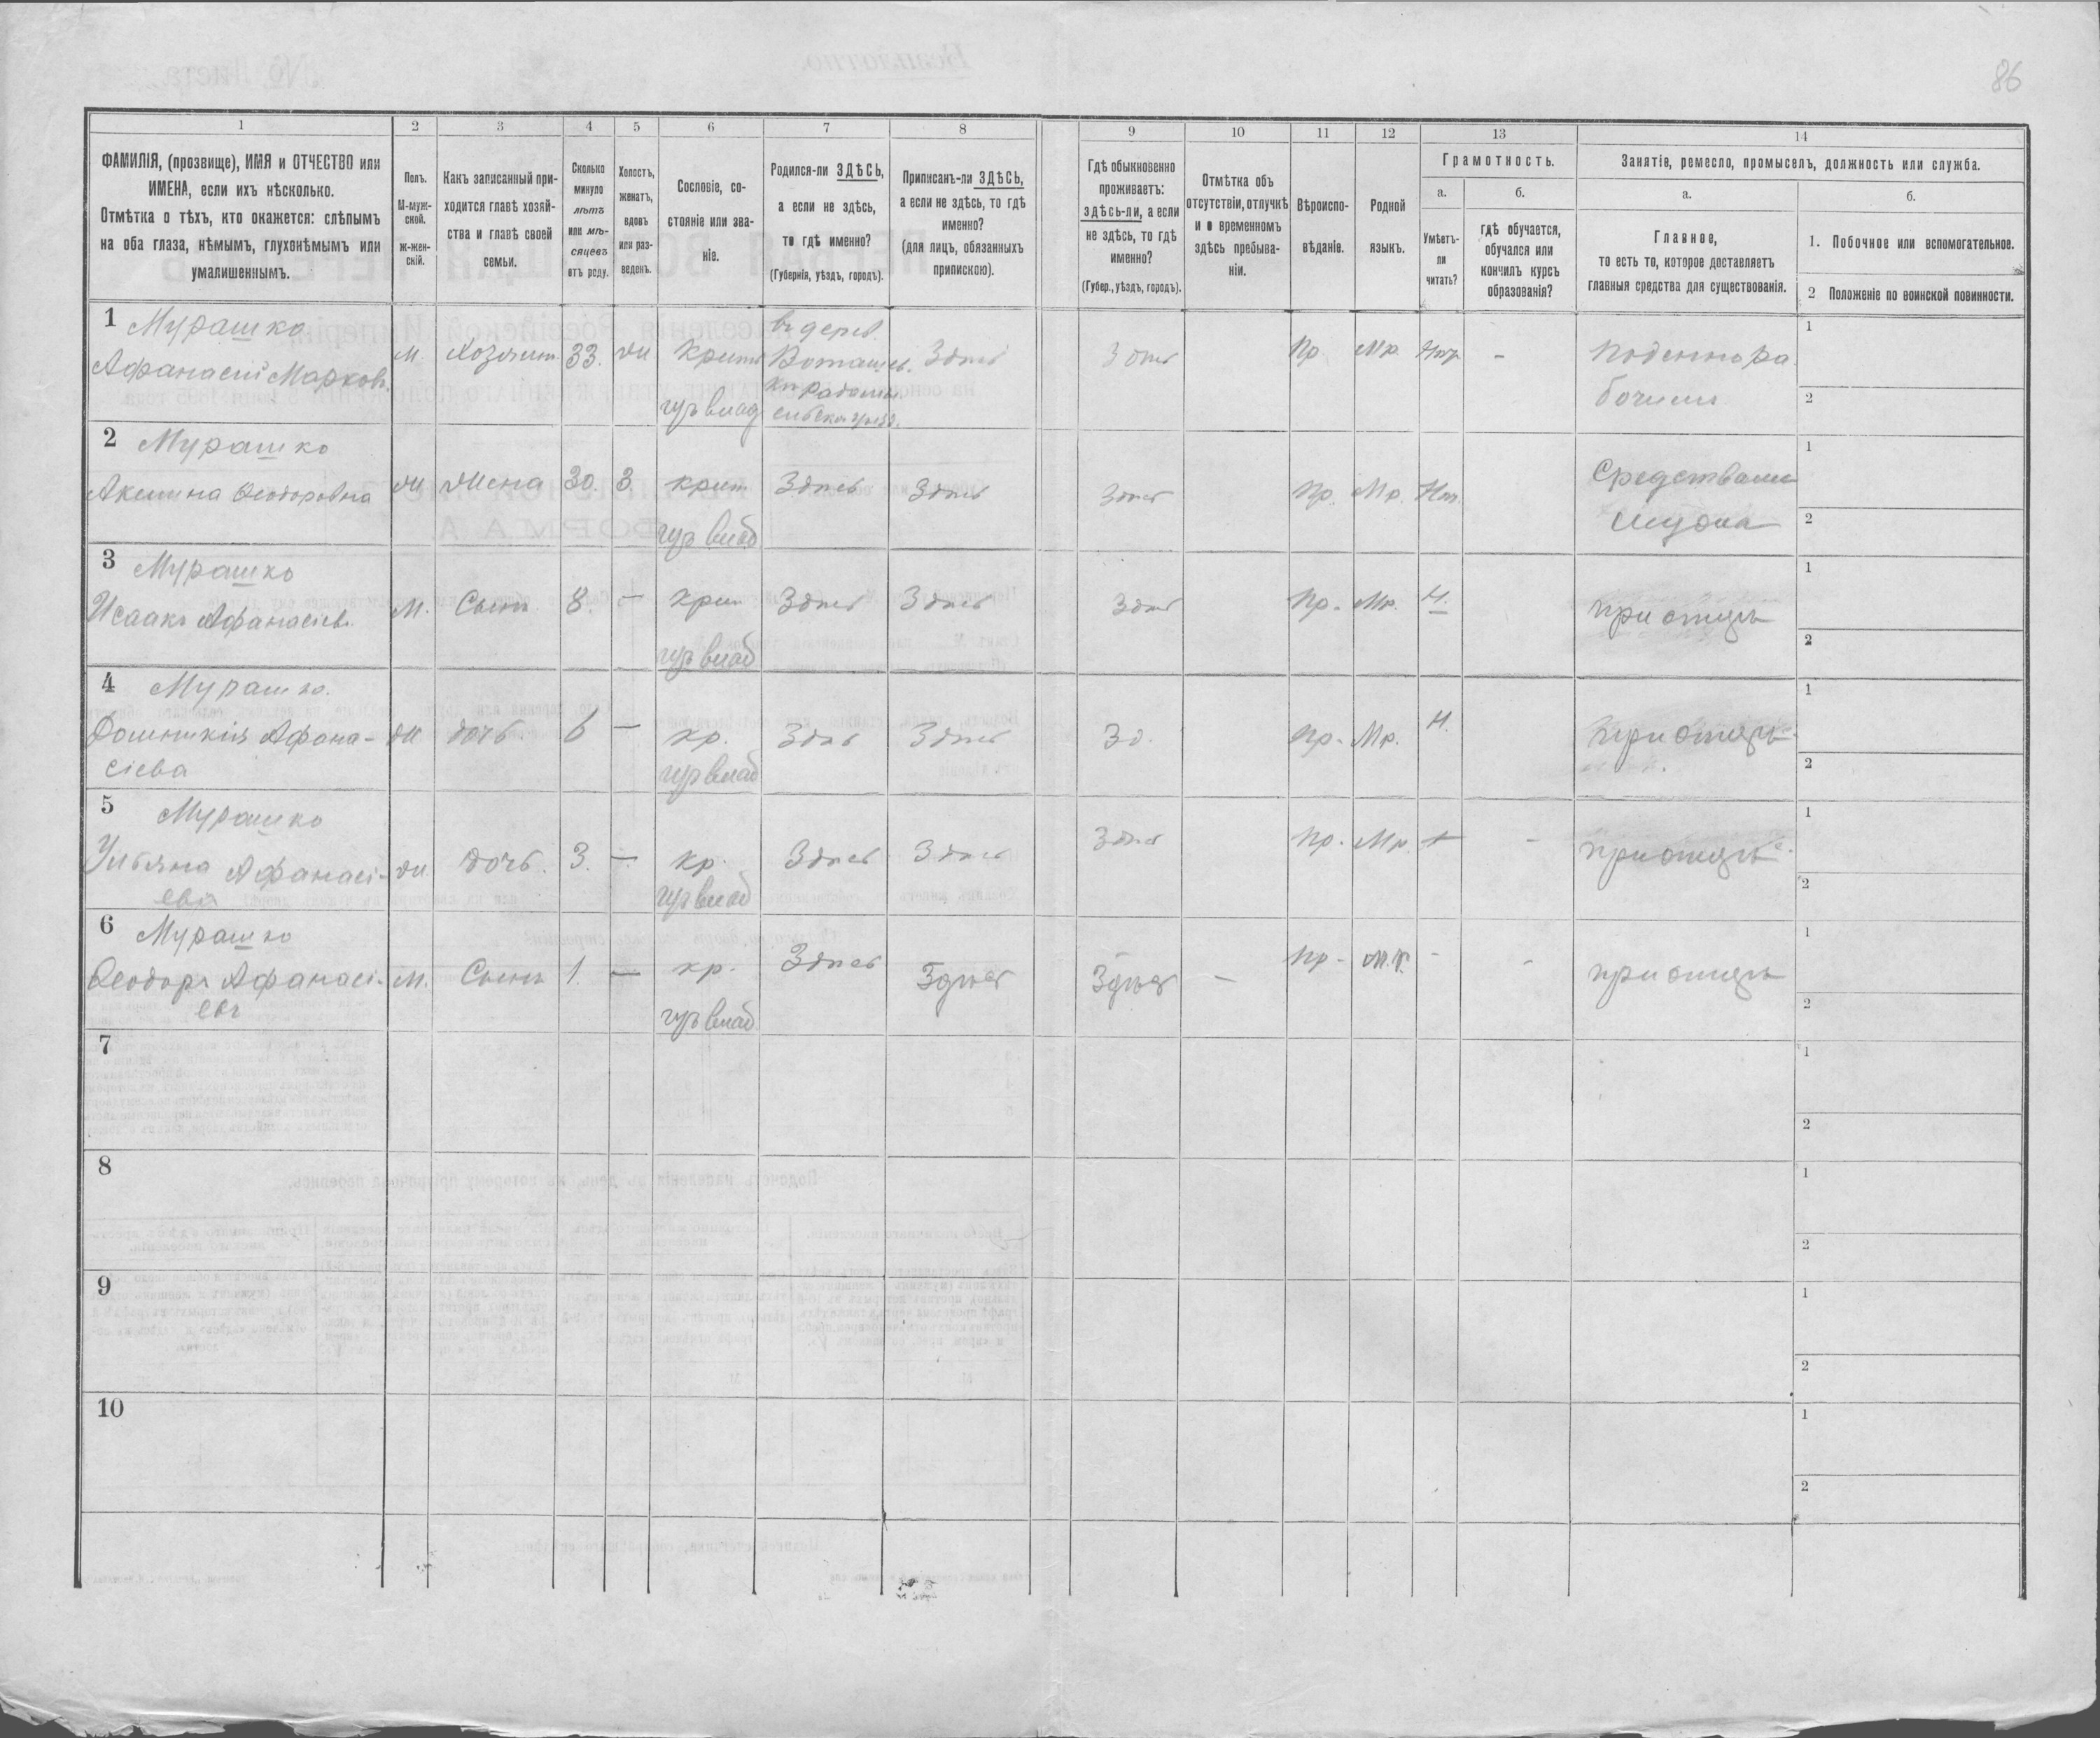 86
1
2
3
4
5
6
7
8
9
10
11
12
13
14
ФАМИЛІЯ, (прозвище), ИМЯ и ОТЧЕСТВО или
ИМЕНА, если ихъ нѣсколько.
Отмѣтка о тѣхъ, кто окажется: слѣпымъ
на оба глаза, нѣмымъ, глухонѣмымъ или
умалишеннымъ.
Полъ.
М-муж-
ской.
ж-жен-
скій.
Какъ записанный при-
ходится главѣ хозяй-
ства и главѣ своей
семьи.
Сколько
минуло
лѣтъ
или мѣ-
сяцевъ
отъ роду.
Холостъ,
женатъ,
вдовъ
или раз-
веденъ.
Сословіе, со-
стояніе или зва-
ніе.
Родился-ли ЗДѢСЬ,
а если не здѣсь,
то гдѣ именно?
(Губернія, уѣздъ, городъ).
Приписанъ-ли ЗДѢСЬ,
а если не здѣсь, то гдѣ
именно?
(для лицъ, обязанныхъ
припискою).
Гдѣ обыкновенно
проживаетъ:
здѣсь-ли, а если
не здѣсь, то гдѣ
именно?
(Губер., уѣздъ, городъ).
Отмѣтка объ
отсутствіи, отлучкѣ
и о временномъ
здѣсь пребыва-
ніи.
Вѣроиспо-
вѣданіе.
Родной
языкъ.
Грамотность.
а.
Умѣетъ-
ли
читать?
б.
гдѣ обучается,
обучался или
кончилъ курсъ
образованія?
Занятіе, ремесло, промыселъ, должность или служба.
а.
Главное,
то есть то, которое доставляетъ
главныя средства для существованія.
б.
1. Побочное или вспомогательное.
2 Положеніе по воинской повинности.
1 Мурашко
Афанасій Марковъ
М. Хозяин. 33. Крит
въ дерев.
уѣзд.
Здѣсь Здѣсь Пр. Мр. Нѣтъ –
Поденнора
бочимъ
1
2
2 Мурашко
Акилина Ѳеодоровна ж жена 30. З. крит Здѣсь Здѣсь Здѣсь Пр. Мр. Нѣт.
Средствами
мужа
1
2
3 Мурашко
Исаакъ Афанасіев. М. Сынъ 8. – Крит Здѣсь Здѣсь Здѣсь Пр. Мр. Н. при отцѣ
1
2
4 Мурашко.
Афана-
сіева
ж дочь 6 – кр. Здѣсь Здѣсь Зд. Пр. Мр. Н. При отцѣ
1
2
5 Мурашко
Ульяна Афанасі-
ева
ж. дочь. 3. – кр. Здѣсь Здѣсь Здѣсь Пр. Мр. – – при отцѣ
1
2
6 Мурашко
Ѳеодоръ Афанасі-
евъ
М. Сынъ 1. – кр. Здѣсь Здѣсь Здѣсь – Пр. М.р. – – при отцѣ
1
2
7
1
2
8
1
2
9
1
2
10
1
2